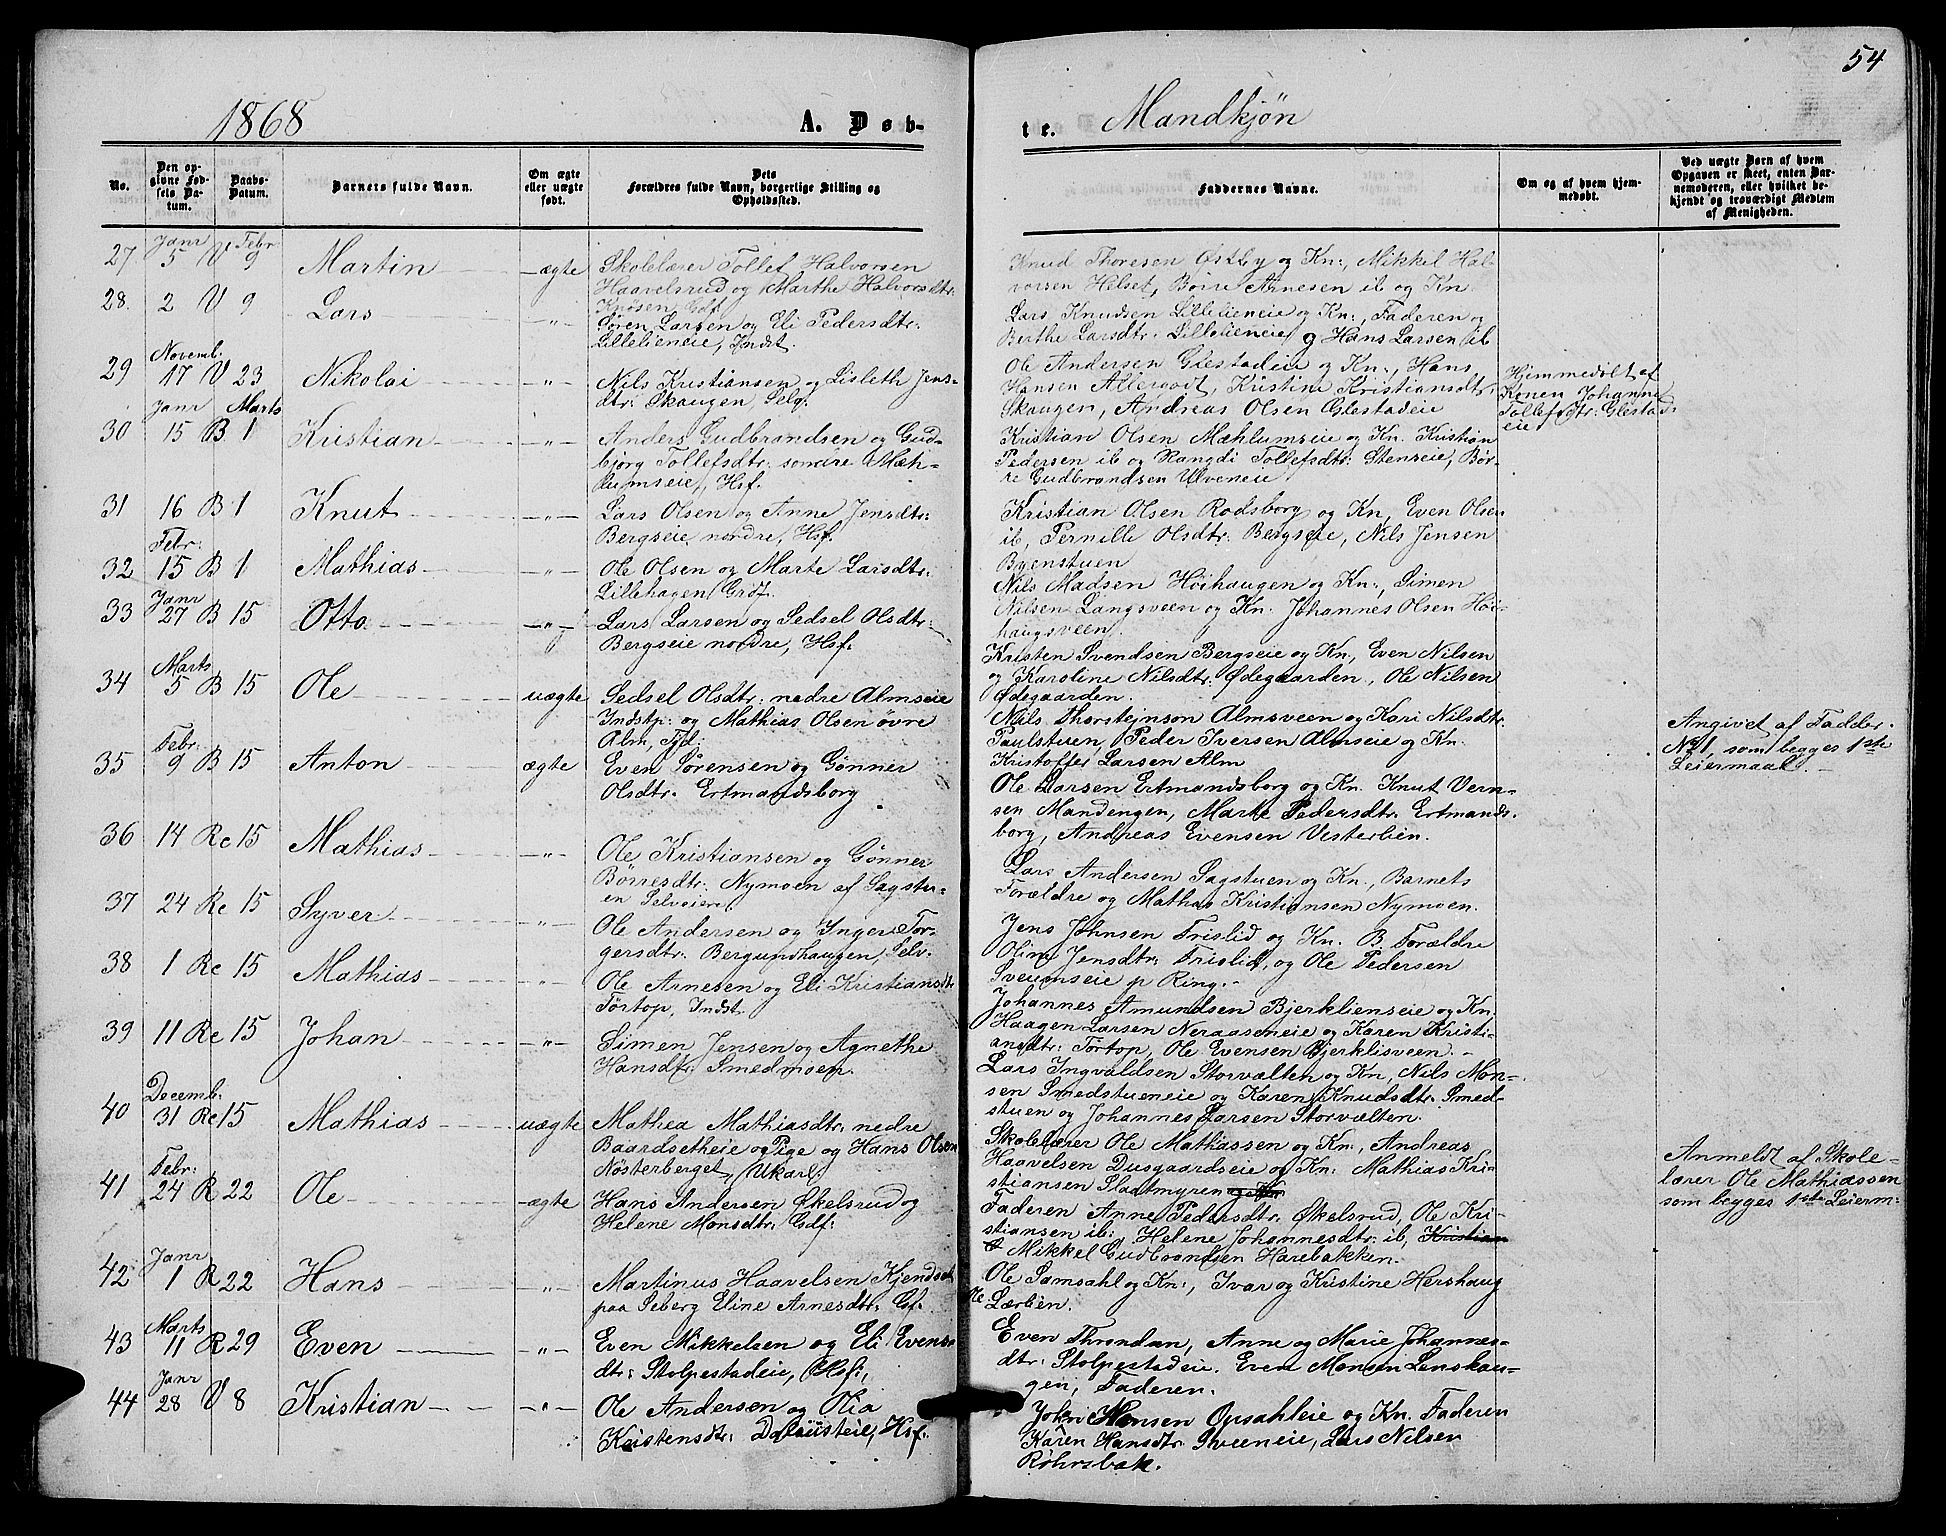 54
1868 A. Døb-
te. Mandkjøn
No.
Den op-
givne Fød-
sels Da-
tum.
Daabs-
Datum.
Barnets fulde Navn.
Om ægte
eller uægte
født.
Dets
Forældres fulde Navn, borgerlige Stilling og
Opholdssted.
Faddernes Navne.
Om og af hvem hjem-
medøbt.
Ved uægte Børn af hvem
Opgaven er skeet, enten Bar-
nemoderen, eller hvilket be-
kjendt og troværdigt Medlem
af Menigheden.
Janr Febr:
27 5 V 9 Martin ægte Skolelærer Tollef Halvorsen
Haavelsrud og Marthe Halvorsdtr:
Knøsen, Gdf
Knud Thoresen Østby og Kn:, Mikkel Hal-
vorsen Helset, Börre Arnesen ib og Kn
28. 2 V 9 Lars -"- Sören Larsen og Eli Pedersdtr:
Lillelieneie, Indst.
Lars Knudsen Lillelieneie og Kn:, Faderen og
Berthe Larsdtr: Lillelieneie og Hans Larsen ib
Novemb.
29 17 V 23 Nikolai -"- Nils Kristiansen og Lisleth Jens-
dtr: Skaugen, Selg.
Ole Andersen Glestadeie og Kn:, Hans
Hansen Allergodt, Kristine Kristiansdtr,
Skaugen, Andreas Olsen Glestadeie
Hjemmedøbt af
Konen Johanne
Tollefsdtr: Glestad-
eie
Janr Marts
30 15 B 1 Kristian -"- Anders Gudbrandsen og Gud-
björg Tollefsdtr: söndre Mæh-
lumseie, Hsf.
Kristian Olsen Mæhlumseie og Kn. Kristian
Pedersen ib og Rangdi Tollefsdtr: Stenseie, Bör-
re Gudbrandsen Ulveneie
31 16 B 1 Knut -"- Lars Olsen og Anne Jensdtr:
Bergseie nordre, Hsf.
Kristian Olsen Rodsborg og Kn, Even Olsen
ib, Pernille Olsdtr: Bergseie, Nils Jensen
Byenstuen
Febr:
32 15 B 1 Mathias -"- Ole Olsen og Marte Larsdtr:
Lillehagen, Grdf.
Nils Madsen Höihaugen og Kn:, Simen
Nilsen Langsveen og Kn: Johannes Olsen Höi-
haugsveen.
Janr
33 27 B 15 Otto -"- Lars Larsen og Sedsel Olsdtr:
Bergseie nordre, Hsf:
Kristen Svendsen Bergseie og Kn, Even Nilsen
og Karoline Nilsdtr: Ødegaarden, Ole Nilsen
Ødegaarden.
Marts
34 5 B 15 Ole uægte Sedsel Olsdtr: nedre Almseie
Indstp: og Mathias Olsen övre
Alm, Tjd:
Nils Thorstejnson Almsveen og Kari Nilsdtr.
Paulstuen, Peder Iversen Almseie og Kn.
Kristoffer Larsen Alm
Angivet af Fadder
No 1, som begges 1ste
Leiermaal.
Febr:
35 9 B 15 Anton ægte Even Sörensen og Gönner
Olsdtr: Ertmandsborg
Ole Larsen Ertmandsborg og Kn. Knut Vern-
sen Mandengen, Marte Pedersdtr: Ertmands-
borg, Andreas Evensen Vesterlien.
36 14 Re 15 Mathias -"- Ole Kristiansen og Gönner
Börresdtr: Nymoen af Sagstu-
en Selveiere
Lars Andersen Sagstuen og Kn., Barnets
Forældre og Mathias Kristiansen Nymoen.
37 24 Re 15 Syver -"- Ole Andersen og Inger Tor-
gersdtr: Bergundhaugen, Selv:
Jens Johnsen Frislid og Kn. B. Forældre
Oline Jensdtr: Frislid, og Ole Pedersen
Sveumseie p Ring.
38 1 Re 15 Mathias -"- Ole Arnesen og Eli Kristiansdtr
Törtop, Indst.
Johannes Amundsen Bjerklienseie og Kn.
Haagen Larsen Neraaseneie og Karen Kristi-
ansdtr: Törtop, Ole Evensen Bjerklisveen.
39 11 Re 15 Johan -"- Simen Jensen og Agnethe
Hansdtr: Smedmoen.
Lars Ingvaldsen Storvælten og Kn, Nils Mon-
sen Smedstueneie og Karen Knudsdtr: Smed-
stuen og Johannes Larsen Storvælten.
Decemb.
40 31 Re 15 Mathias uægte Mathea Mathiasdtr: nedre
Baardsetheie og Pige og Hans Olsen
Nösterberget, Ukarl
Skolelærer Ole Mathiassen og Kn., Andreas
Haavelsen Dusgaardseie og Kn: Mathias Kri-
stiansen Sladtmyren og Kn
Anmeldt af Skole-
lærer Ole Mathiassen
som begges 1ste Leierm:
Febr:
41 24 R 22 Ole ægte Hans Andersen Økelsrud og
Helene Monsdtr: Gdf:
Faderen Anne Pedersdtr: Økelsrud, Ole Kri-
stiansen ib: Helene Johannesdtr: ib, Kristian
Mikkel Gudbrandsen Harebakken.
Janr
42 1 R 22 Hans -"- Martinus Haavelsen Kjendset
paa Seberg Eline Arnesdtr: Gsf.
Ole Samsahl og Kn:, Ivar og Kristine Hershaug
Ole Lærlien.
Marts
43 11 R 29 Even -"- Even Mikkelsen og Eli Evens-
dtr: Stolpestadeie, Hsf:,
Even Throndsn, Anne og Marie Johannes-
dtr: Stolpestadeie. Even Monsen Lenshau-
gen, Faderen.
Janr
44 28 V 8 Kristian -"- Ole Andersen og Olia
Kristensdtr: Dalsüsteie, Hsf.
John Hansen Opsahleie og Kn. Faderen
Karen Hansdtr: Sveeneie, Lars Nilsen
Röhrsbak.